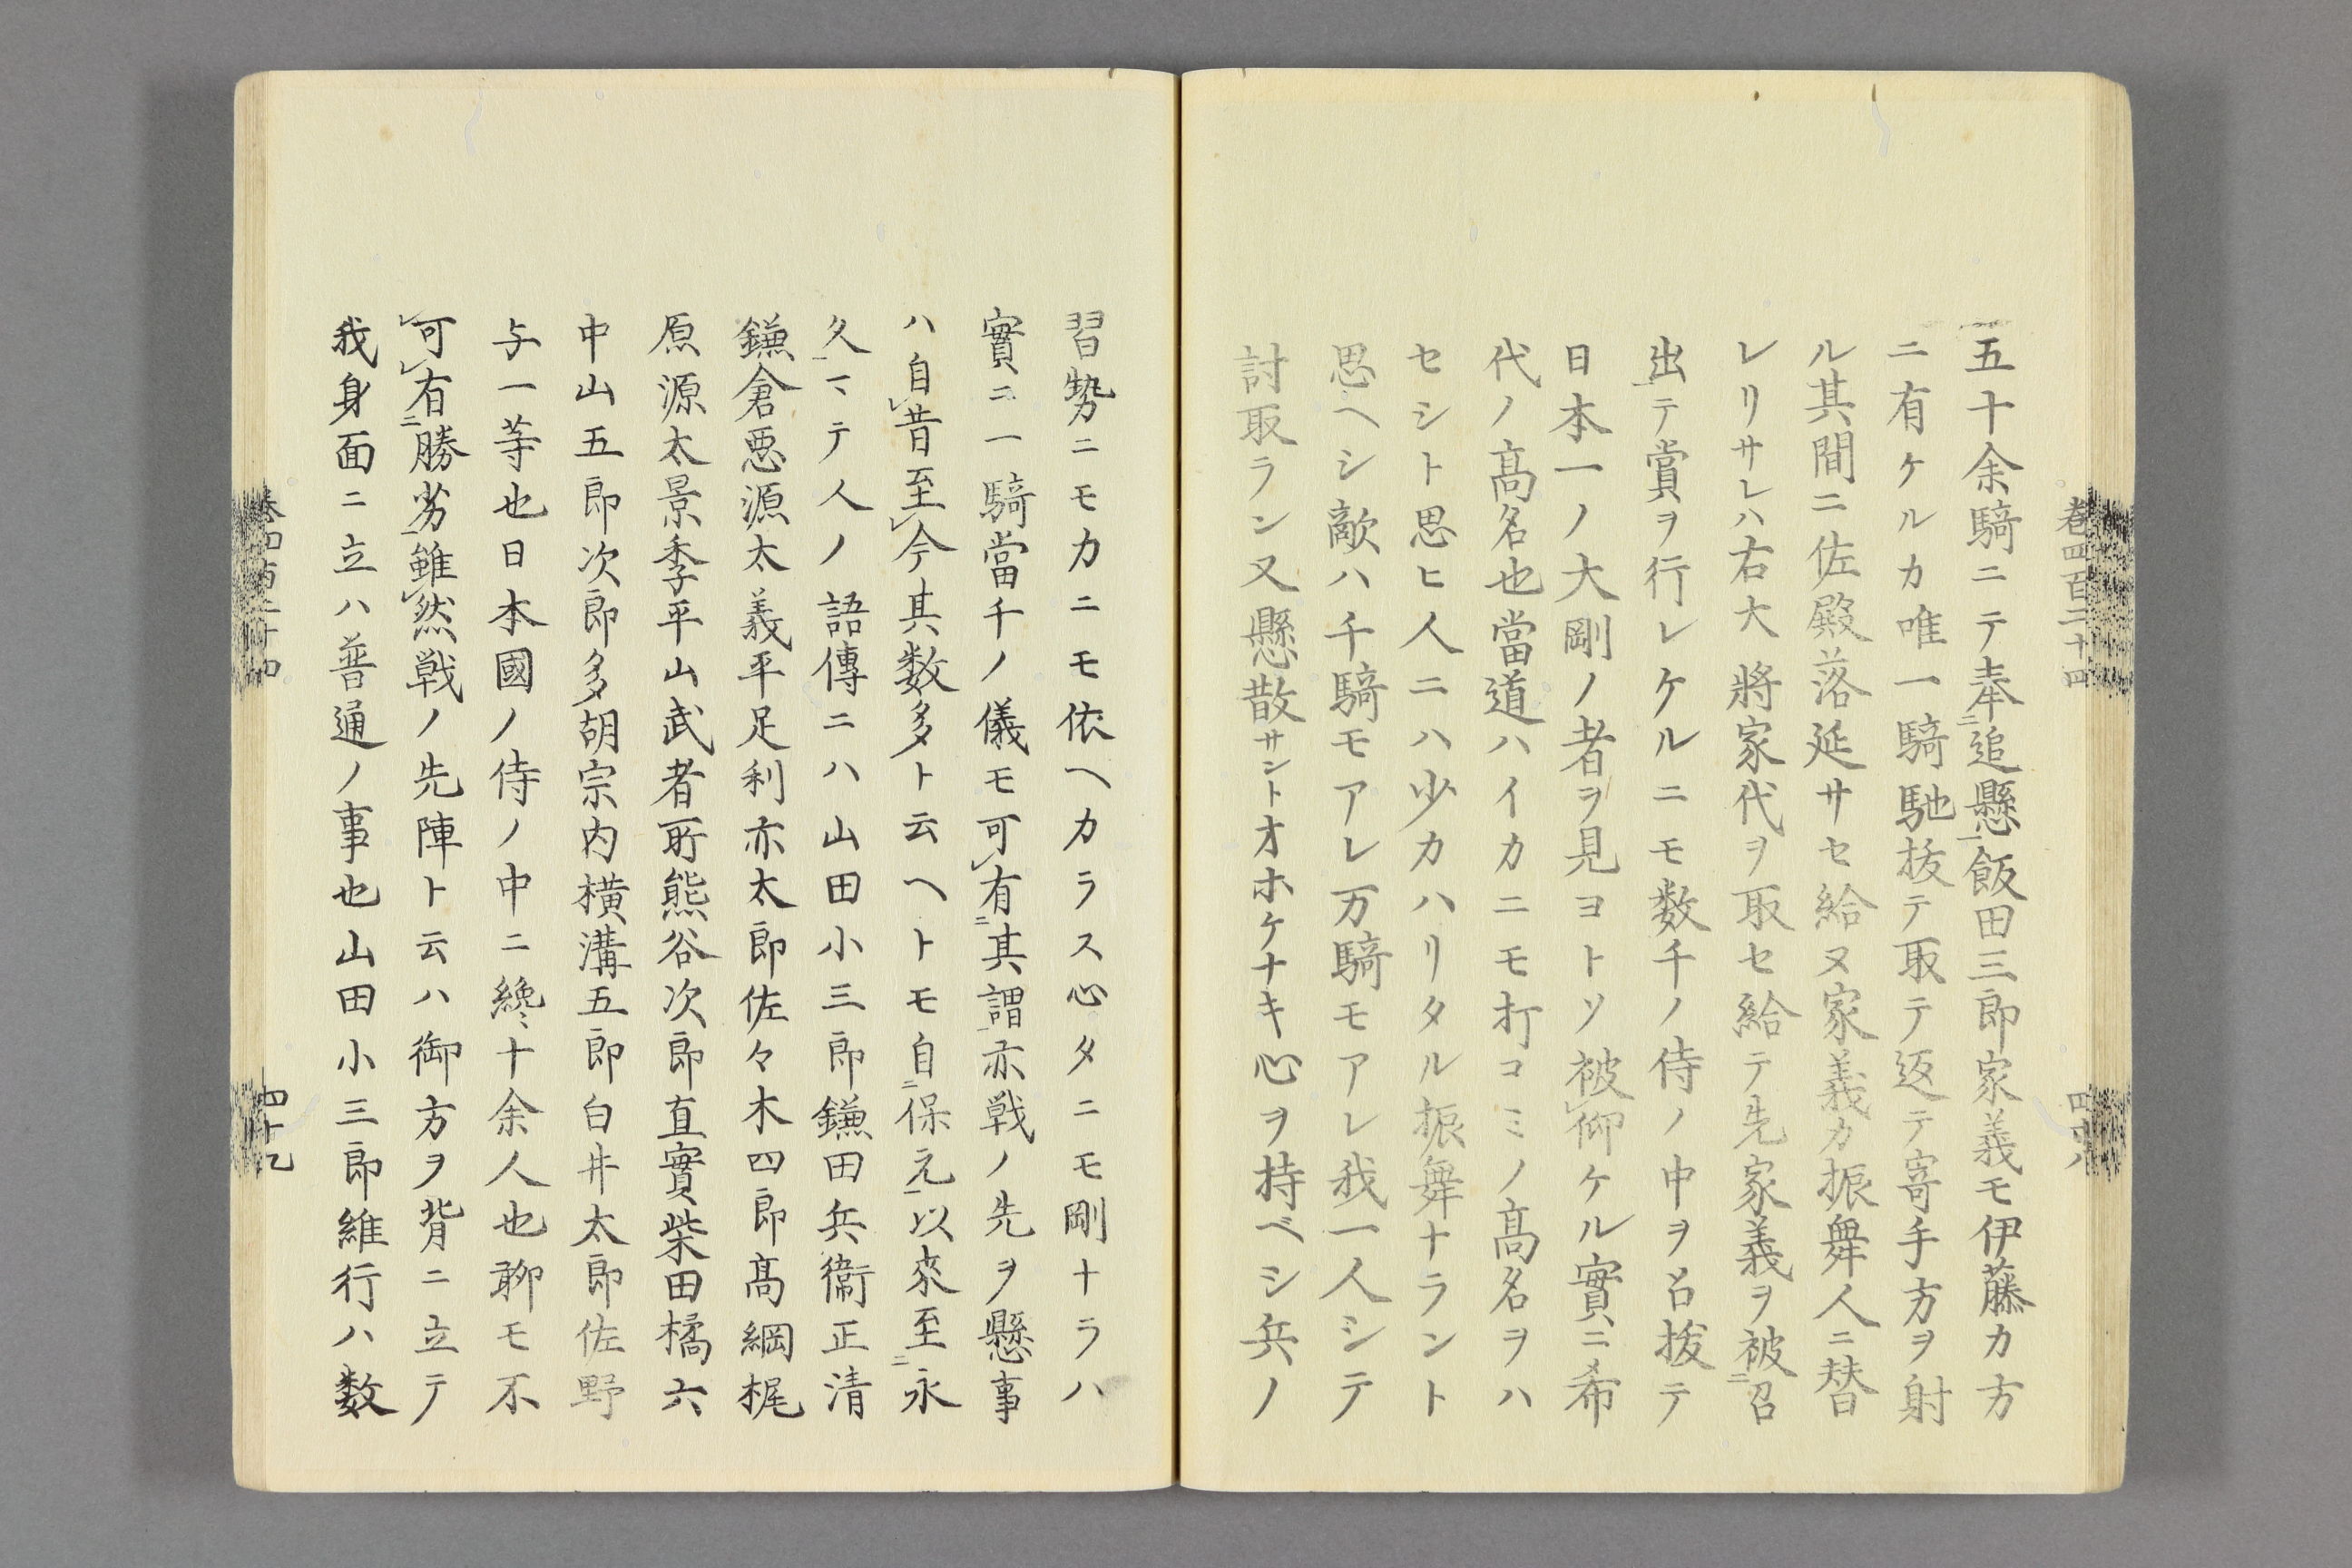 巻四百二十四
五十余騎ニテ奉二追懸一飯田三郎家義モ伊藤カ方
ニ有ケルカ唯一騎馳抜テ取テ返テ寄手方ヲ射
ル其間ニ佐殿落延サセ給ヌ家義カ振舞人ニ替
レリサレハ右大将家代ヲ取セ給テ先家義ヲ被二召
出一テ賞ヲ行レケルニモ数千ノ侍ノ中ヲ召抜テ
日本一ノ大剛ノ者ヲ見ヨトソ被レ仰ケル實ニ希
代ノ髙名也當道ハイカニモ打コミノ髙名ヲハ
セシト思ヒ人ニハ少カハリタル振舞ナラント
思ヘシ敵ハ千騎モアレ万騎モアレ我一人シテ
討取ラン又懸散サントオホケナキ心ヲ持ベシ兵ノ
四十八
習勢ニモカニモ依ヘカラス心タニモ剛ナラハ
實ニ一騎當千ノ儀モ可レ有二其謂一亦戦ノ先ヲ懸事
ハ自レ昔至レ今其数多ト云ヘトモ自二保元一以来至二永
久一マテ人ノ語傳ニハ山田小三郎鎌田兵衞正清
鎌倉悪源太義平足利亦太郎佐々木四郎髙綱梶
原源太景季平山武者所熊谷次郎直實柴田橘六
中山五郎次郎多胡宗内横溝五郎白井太郎佐野
与一等也日本國ノ侍ノ中ニ纔ニ十余人也聊モ不
可レ有二勝劣一雖レ然戦ノ先陣ト云ハ御方ヲ背ニ立テ
我身面ニ立ハ普通ノ事也山田小三郎維行ハ数
巻四百二十四
四十九